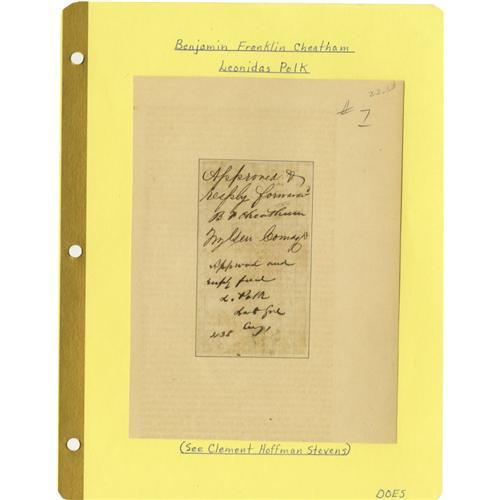 Benjamin Franklin Cheatham
Leonidas Polk
22.50
# 7
Approved &
respfy forward
B F Cheatham
Approved and
respf
L. Polk
Lt Gnl
Comg
(See Clement Hoffman Stevens)
DOES